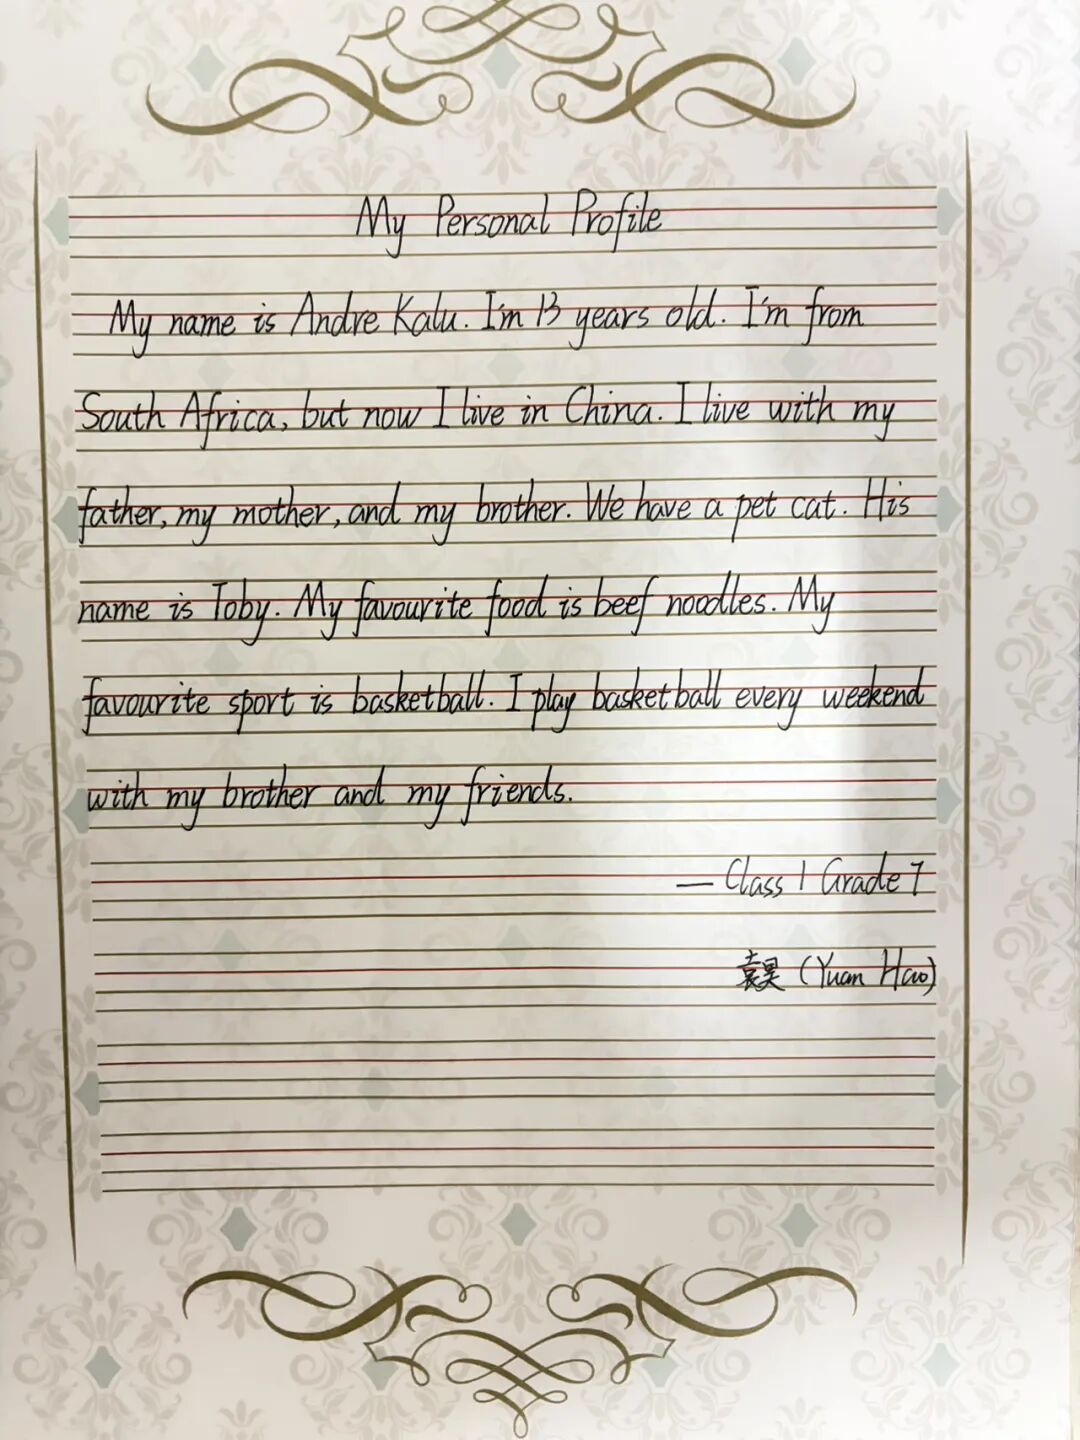 My Personal Profile
My name is Andre Kalu. I'm 13 years old. I'm from
South Africa, but now I live in China. I live with my
father, my mother, and my brother. We have a pet cat. His
name is Toby. My favourite food is beef noodles. My
favourite sport is basketball. I play basketball every weekend
with my brother and my friends.
— Class 1 Grade 7
袁昊 (Yuan Hao)